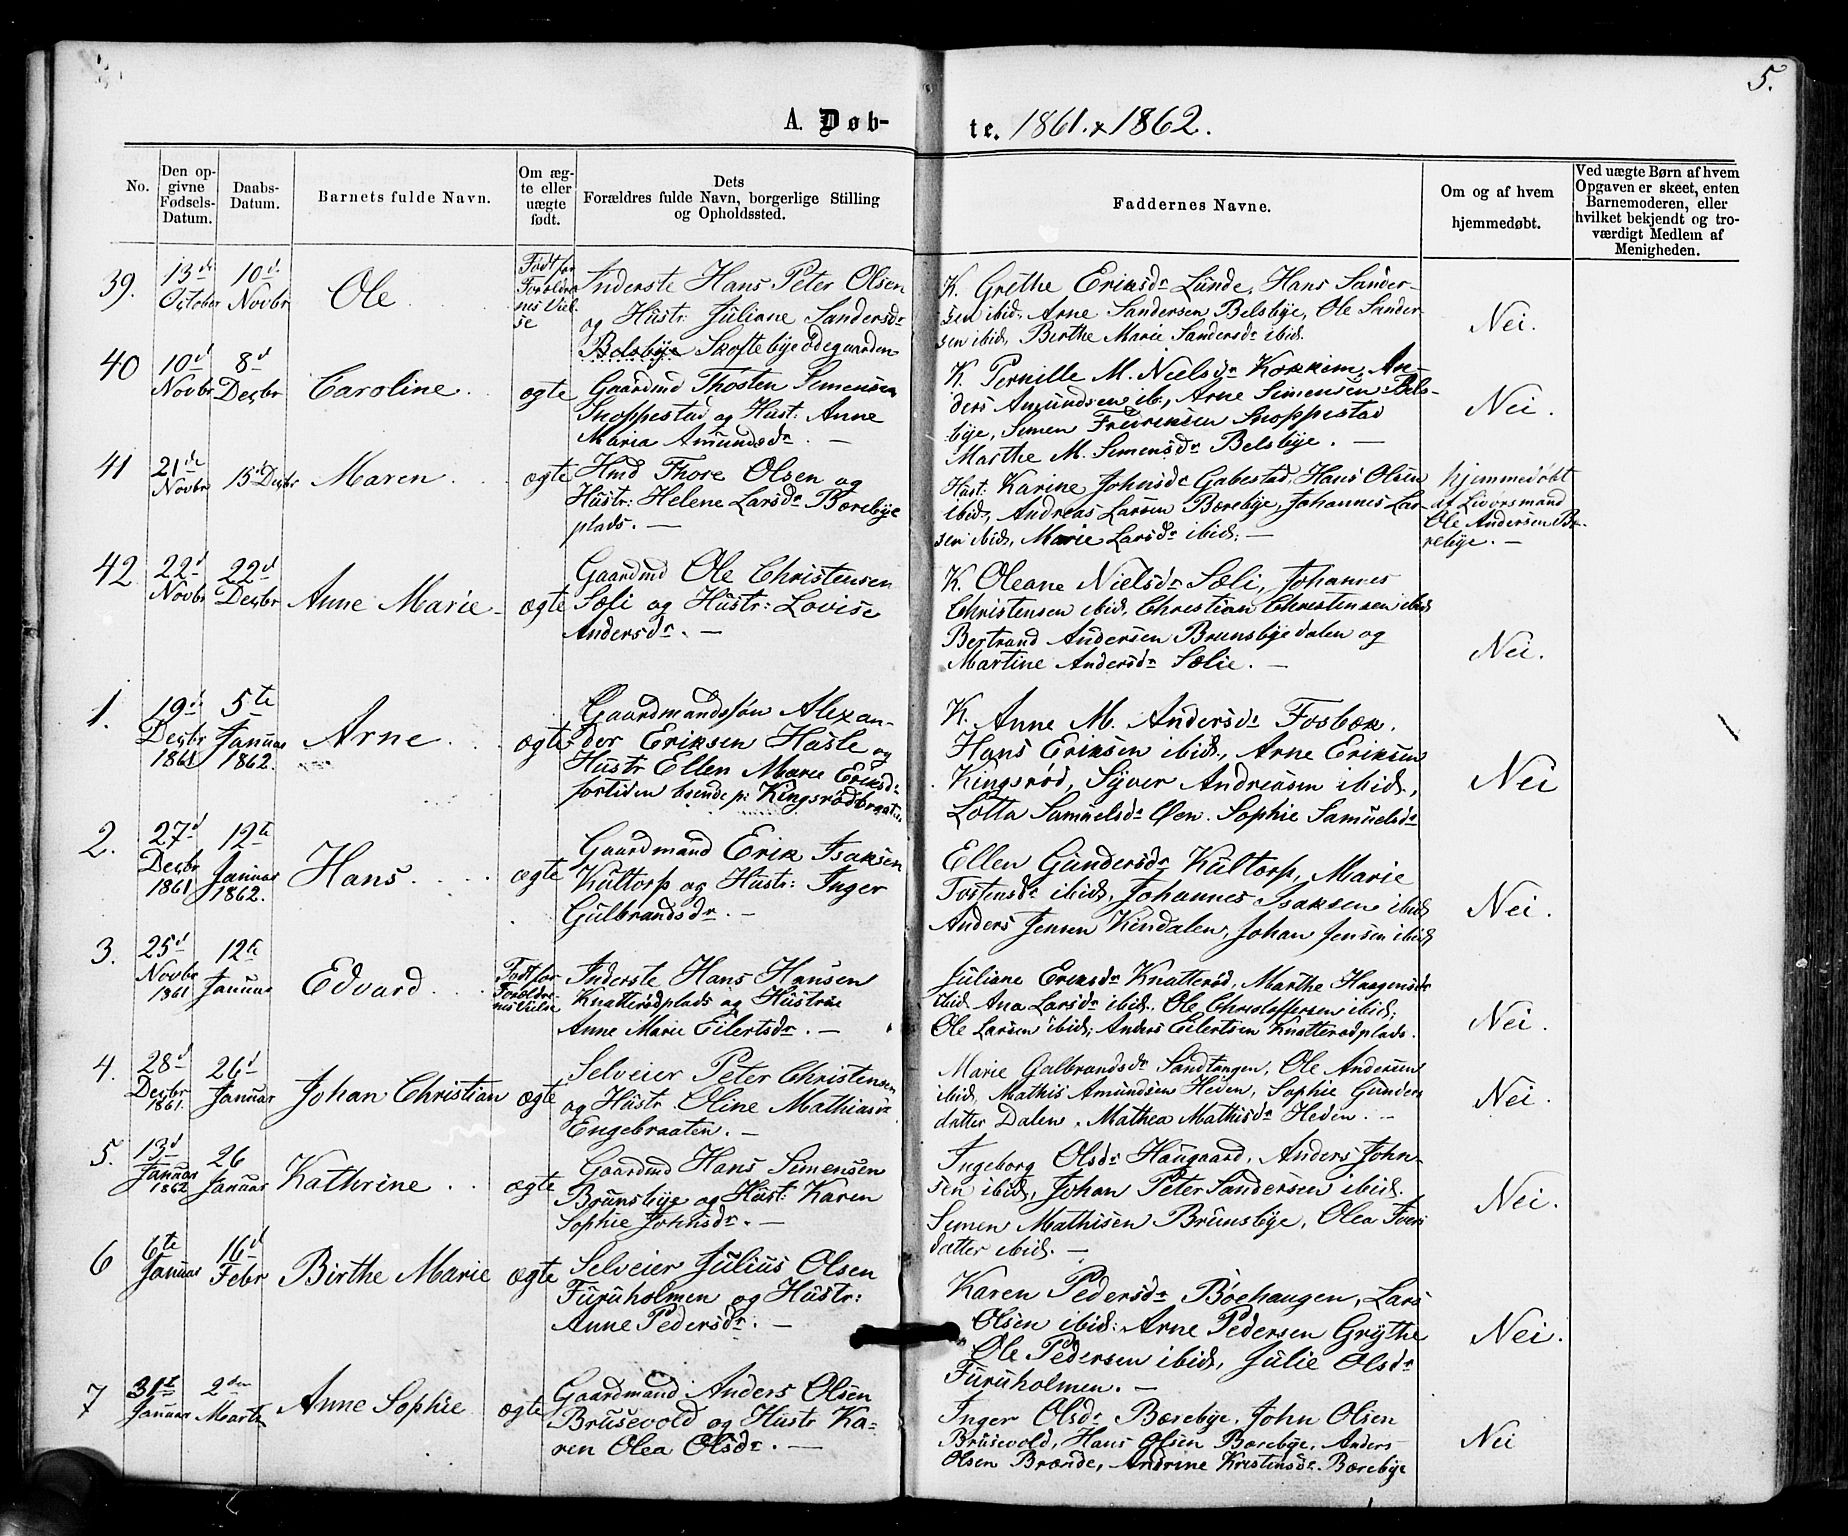 5.
A. Døb- te. 1861. & 1862.
No.
Den op-
givne
Fødsels-
Datum.
Daabs-
Datum.
Barnets fulde Navn.
Om æg-
te eller
uægte
født.
Dets
Forældres fulde Navn, borgerlige Stilling
og Opholdssted.
Faddernes Navne.
Om og af hvem
hjemmedøbt.
Ved uægte Børn af hvem
Opgaven er skeet, enten
Barnemoderen, eller
hvilket bekjendt og tro-
værdigt Medlem af
Menigheden.
39.
13de
October
10d
Novbr
Ole
Født for
Foreldre
nes Viel-
se
Inderste Hans Peter Olsen
og Hustr: Juliane Sandersdr
Belsbye Skoftebyeødegaarden
K. Grethe Eriksdr Lunde, Hans Sander-
sen ibid, Arne Sandersen Belsbye, Ole Sander-
sen ibid, Berthe Marie Sandersdr ibid.
Nei.
40
10d
Novbr
8d
Decbr
Caroline
ægte
Gaardmd Thosten Simensen
Snoppestad og Hust: Anne
Maria Amundsdr. —
K. Pernille M. Nielsdr Kokkim, An-
ders Amundsen ib., Arne Simensen Bels-
bye, Simen Fredriksen Snoppestad
Marthe M. Simensdr Belsbye. —
Nei.
41
21de
Novbr
15d Decbr
Maren
ægte
Hmd Thore Olsen og
Hustr: Helene Larsdr Bærebye
plads. —
Hust: Karine Johnsdr Gabestad, Hans Olsen
ibid, Andreas Larsen Bærebye, Johannes Lar-
sen ibid, Marie Larsdr ibid. —
hjemmedøbt
af
Ole Andersen Bæ-
rebye. —
42
22d
Novbr
22d
Decbr
Anne Marie
ægte
Gaardmd Ole Christensen
Sæli og Hustr: Lovise
Andersdr. —
K. Oleane Nielsdr Sæli, Johannes
Christensen ibid, Christian Christensen ibid
Bertrand Andersen Brunsbyedalen og
Martine Andersdr Sælie. —
Nei.
1.
19d
Decbr
1861
5te
Januar
1862.
Arne
ægte
Gaardmandssøn Alexan-
der Eriksen Hasle og
Hustr Ellen Marie Eriksdr
fortiden boende pr Kingsrødbraaten
K. Anne M. Andersdr Fosbæk.
Hans Eriksen ibid, Arne Eriksen
Kingsrød, Syver Andreasen ibid,
Lotta Samuelsdr Øen. Sophie Samuelsdr
Nei
2.
27d
Decbr
1861
12te
Januar
1862.
Hans
ægte
Gaardmand Erik Isaksen
Kultorp og Hustr: Inger
Gulbrandsdr. —
Ellen Gundersdr Kultorp, Marie
Tostensdr ibid, Johannes Isaksen ibid
Anders Jensen Kindalen, Johan Jensen ibid
Nei.
3.
25d
Novbr
1861
12te
Januar
Edvard
Født for
Foreldre-
nes Vielse
Inderste Hans Hansen
Knatterødplads og Hustrue
Anne Marie Eilertsdr. —
Juliane Eriksdr Knatterød, Marthe Haagensdr
ibid. Ana Larsdr ibid. Ole Christoffersen ibid;
Ole Larsen ibid; Anders Eilertsen Knatterødplads.
Nei.
4.
28d
Decbr
1861.
26d
Januar
Johan Christian
ægte
Selveier Peter Christensen
og Hustr. Oline Mathiasdr
Engebraaten. —
Marie Gulbrandsdr Sandtangen, Ole Andersen
ibid, Mathis Amundsen Heden, Sophie Gunders
datter Dalen, Mathea Mathisdr Heden. —
Nei.
5.
13d
Januar
1862
26
Januar
Kathrine
ægte
Gaardmd Hans Simensen
Brunsbye og Hust: Karen
Sophie Johnsdr. —
Ingeborg Olsdr Haugaard, Anders John-
sen ibid, Johan Peter Sandersen ibid.
Simen Mathisen Brunsbye, Olea Iver
datter ibid. —
Nei.
6
6te
Januar
16d
Febr
Birthe Marie
ægte
Selveier Julius Olsen
Furuholmen og Hustr:
Anne Pedersdr. —
Karen Pedersdr Bøehaugen, Lars
Olsen ibid; Arne Pedersen Grythe
Ole Pedersen ibid, Julie Olsdr
Furuholmen. —
Nei.
7
31st
Januar
2den
Marts
Anne Sophie
ægte
Gaardmand Anders Olsen
Brusevold og Hustr Ka-
ren Olea Olsdr. —
Inger Olsdr Bærebye, John Olsen
Brusevold, Hans Olsen Bærebye, Anders
Olsen Brænde, Andrine Kristensdr. Bærebye
Nei